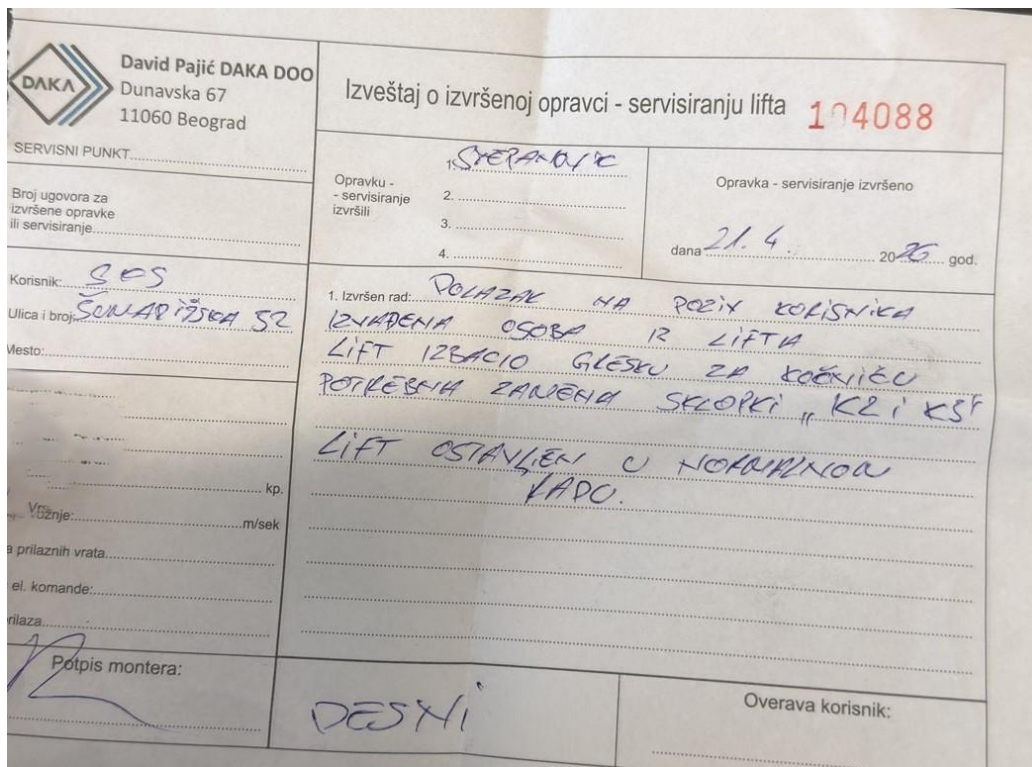 DAKA
David Pajić DAKA DOO
Dunavska 67
11060 Beograd
Izveštaj o izvršenoj opravci - servisiranju lifta 104088
SERVISNI PUNKT
Broj ugovora za
izvršene opravke
ili servisiranje
Opravku -
- servisiranje
izvršili
1. STEPANOVIC
2.
3.
4.
Opravka - servisiranje izvršeno
dana 21. 4. 2026 god.
Korisnik: SOS
Ulica i broj: ŠUMADIJSKA 52
Mesto:
kp.
Vožnje: m/sek
a prilaznih vrata
el. komande:
rilaza
1. Izvršen rad: DOLAZAK NA POZIV KORISNIKA
IZVAĐENA OSOBA IZ LIFTA
LIFT IZBACIO GREŠKU ZA KOČNICU
POTREBNA ZAMENA SKLOPKI „KZ i KS"
LIFT OSTAVLJEN U NORMALNOM
RADU.
Potpis montera:
DESNI
Overava korisnik: